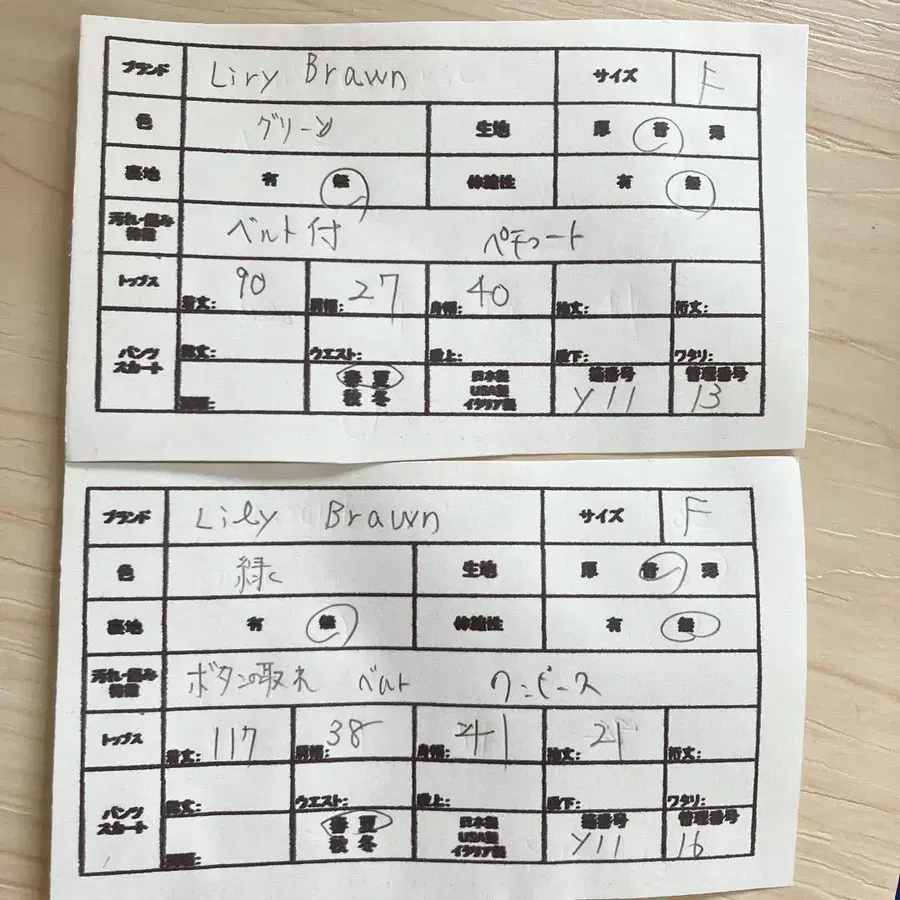 ブランド Liry Brawn サイズ F
色 グリーン 生地 厚 普 薄
裏地 有 無 伸縮性 有 無
汚れ・傷み
特徴 ベルト付 ペチコート
トップス 着丈: 90 肩幅: 27 身幅: 40 袖丈: 裄丈:
パンツ
スカート 総丈: ウエスト: 股上: 股下: ワタリ:
春 夏
秋 冬
日本製
USA製
イタリア製
箱番号
Y11
管理番号
13
ブランド Lily Brawn サイズ F
色 緑 生地 厚 普 薄
裏地 有 無 伸縮性 有 無
汚れ・傷み
特徴 ボタンの取れ ベルト ワンピース
トップス 着丈: 117 肩幅: 38 身幅: 41 袖丈: 21 裄丈:
パンツ
スカート 総丈: ウエスト: 股上: 股下: ワタリ:
春 夏
秋 冬
日本製
USA製
イタリア製
箱番号
Y11
管理番号
16